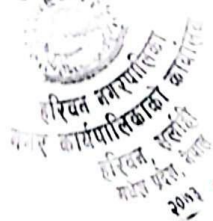 हरिवन नगरपालिका
नगर कार्यपालिकाको कार्यालय
हरिवन, सर्लाही
मधेश प्रदेश, नेपाल
२०७३